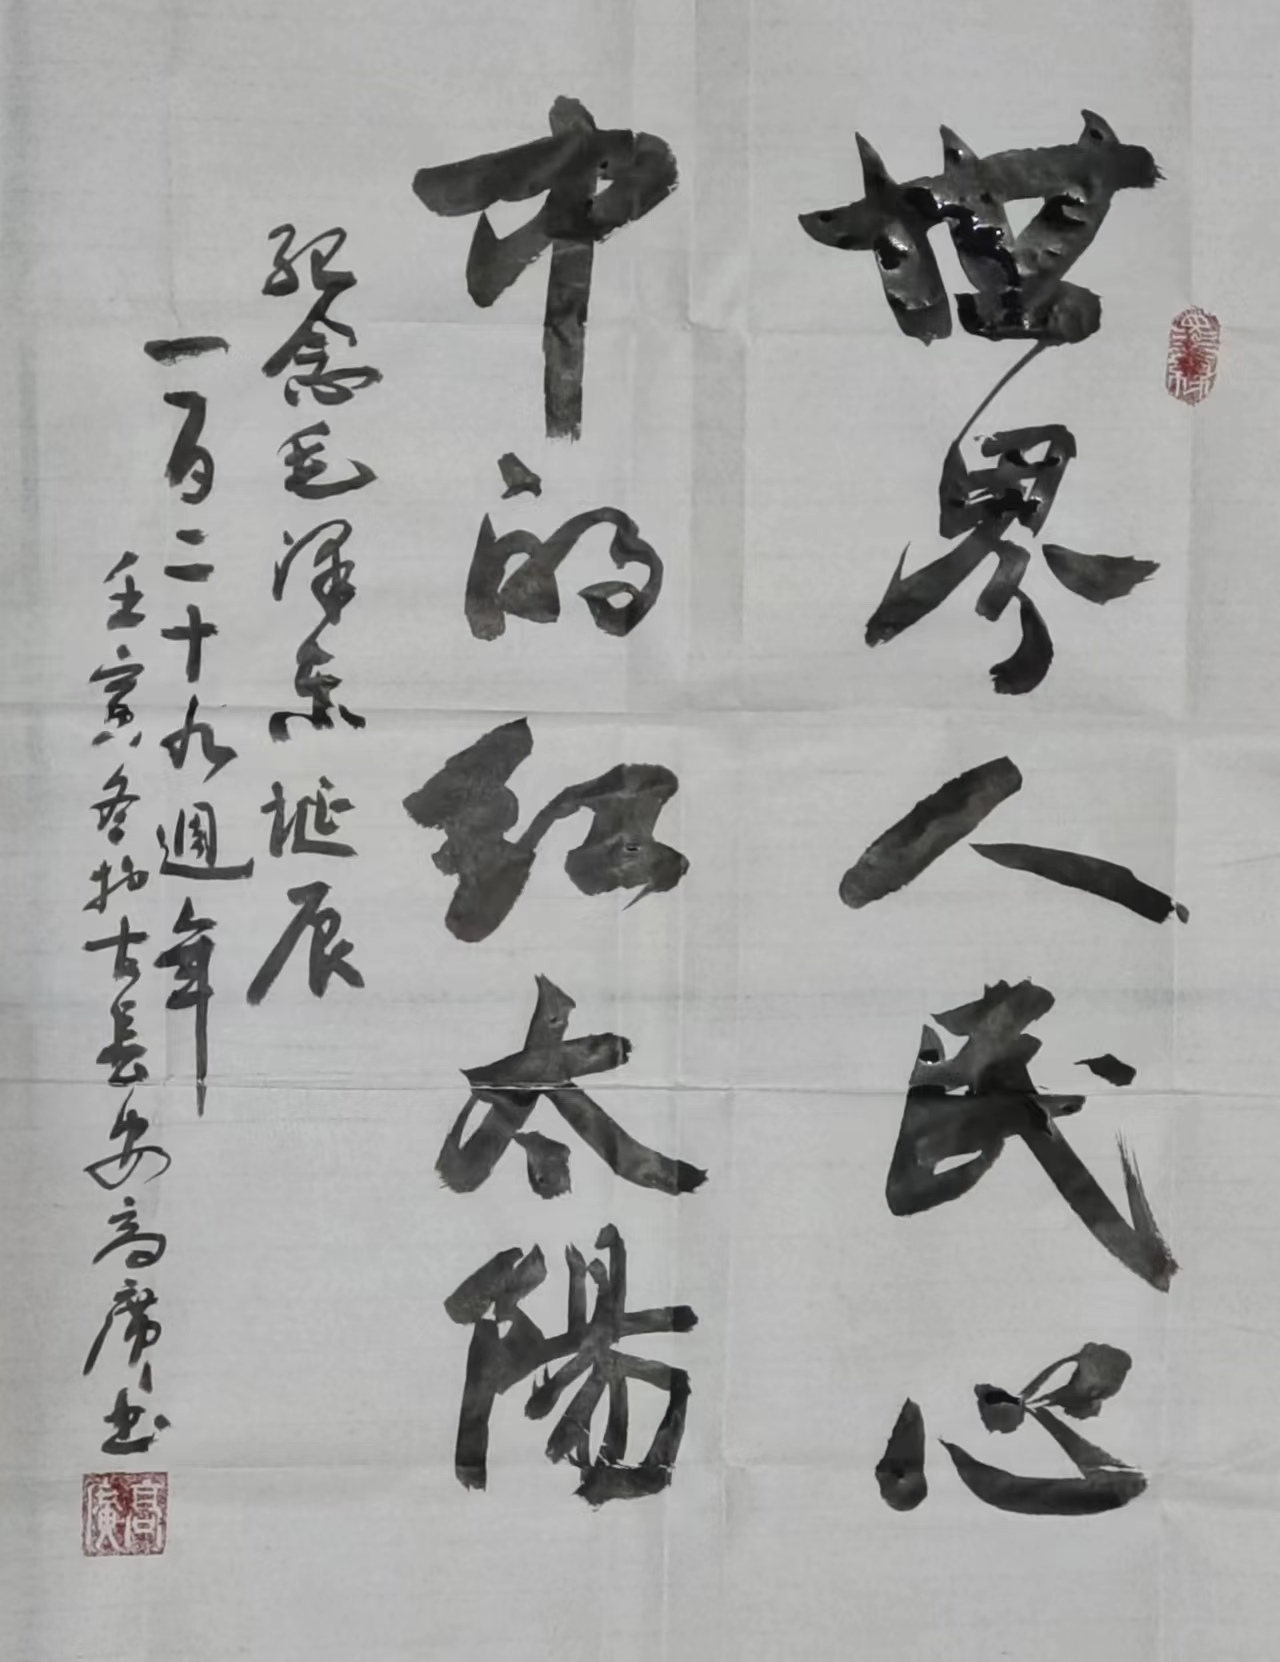 世界人民心
中的红太陽
纪念毛泽东诞辰
一百二十九週年
壬寅冬於古長安高廣书
高廣